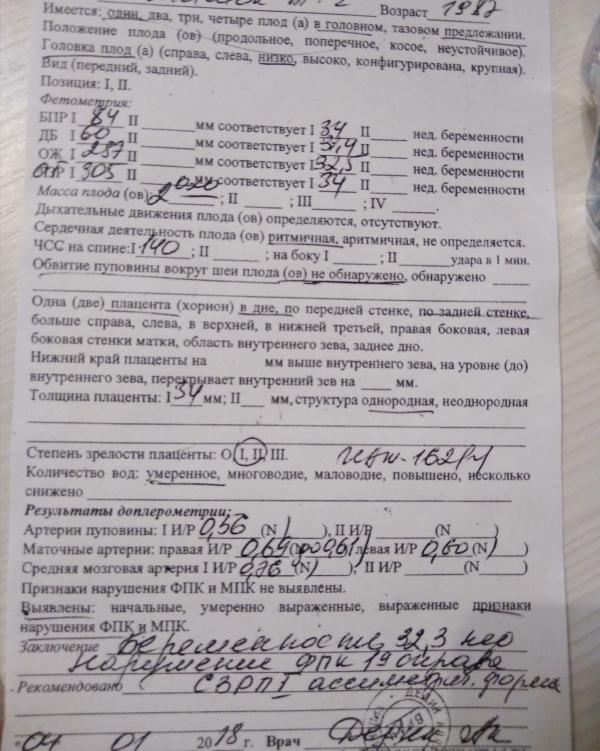 Возраст 1987
Имеется: один, два, три, четыре плод (а) в головном, тазовом предлежании.
Положение плода (ов) (продольное, поперечное, косое, неустойчивое).
Головка плод (а) (справа, слева, низко, высоко, конфигурирована, крупная).
Вид (передний, задний).
Позиция: I, II.
Фетометрия:
БПР I 84 II ______ мм соответствует I 34 II ____ нед. беременности
ДБ I 60 II ______ мм соответствует I 31,4 II ____ нед. беременности
ОЖ I 287 II ______ мм соответствует I 32,5 II ____ нед. беременности
I 305 II ______ мм соответствует I 34 II ____ нед. беременности
Масса плода (ов): 2020 ; II _____ ; III _____ ; IV _____.
Дыхательные движения плода (ов) определяются, отсутствуют.
Сердечная деятельность плода (ов) ритмичная, аритмичная, не определяется.
ЧСС на спине: I 140 ; II ______ ; на боку I _____ ; II _____ удара в 1 мин.
Обвитие пуповины вокруг шеи плода (ов) не обнаружено, обнаружено ____
Одна (две) плацента (хорион) в дне, по передней стенке, по задней стенке,
больше справа, слева, в верхней, в нижней третьей, правая боковая, левая
боковая стенки матки, область внутреннего зева, заднее дно.
Нижний край плаценты на мм выше внутреннего зева, на уровне (до)
внутреннего зева, перекрывает внутренний зев на ____ мм.
Толщина плаценты: I 34 мм; II ___ мм, структура однородная, неоднородная
Степень зрелости плаценты: О, I, II, III. ИАЖ-162мм
Количество вод: умеренное, многоводие, маловодие, повышено, несколько
снижено
Результаты доплерометрии:
Артерии пуповины: I И/Р 0,56 (N ), II И/Р ______ (N )
Маточные артерии: правая И/Р 0,64 (до 0,61) левая И/Р 0,60 (N )
Средняя мозговая артерия I И/Р 0,76 (N ), II И/Р ______ (N )
Признаки нарушения ФПК и МПК не выявлены.
Выявлены: начальные, умеренно выраженные, выраженные признаки
нарушения ФПК и МПК.
Заключение Беременность 32,3 нед
Нарушение ФПК 1а справа
Рекомендовано СЗРП I ассиметрич. форма
" 04 01 2018 г. Врач